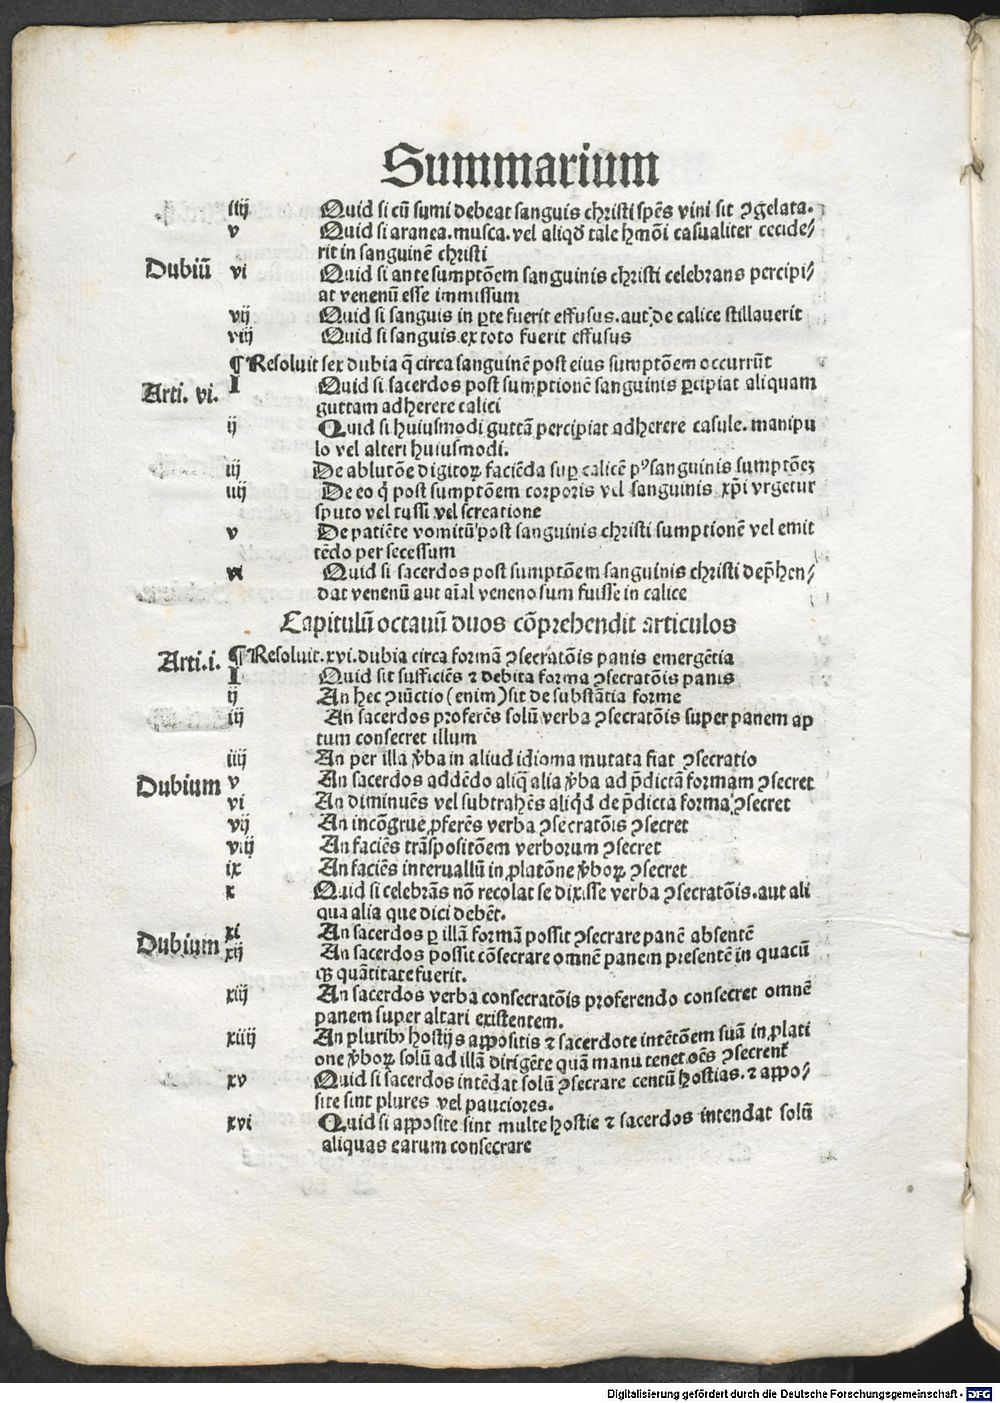 Summarium
iiij Quid si cũ sumi debeat sanguis christi spẽs vini sit ꝯgelata.
v Quid si aranea. musca. vel aliqđ tale hmõi casualiter cecide/
rit in sanguinẽ christi
Dubiũ vi Quid si ante sumptõem sanguinis christi celebrans percipi/
at venenũ esse immissum
vij Quid si sanguis in ꝑte fuerit effusus. aut de calice stillauerit
viij Quid si sanguis ex toto fuerit effusus
¶ Resoluit sex dubia q̃ circa sanguinẽ post eius sumptõem occurrũt
Arti. vi. I Quid si sacerdos post sumptionẽ sanguinis ꝑcipiat aliquam
guttam adherere calici
ij Quid si huiusmodi guttã percipiat adherere casule. manipu
lo vel alteri huiusmodi.
iij De ablutõe digitoꝝ faciẽda suꝑ calicẽ pꝰ sanguinis sumptõeꝫ
iiij De eo q̇ post sumptõem corporis vel sanguinis xp̃i vrgetur
sputo vel tussi vel screatione
v De patiẽte vomitũ post sanguinis christi sumptionẽ vel emit
tẽdo per secessum
vi Quid si sacerdos post sumptõem sanguinis christi dep̃hen/
dat venenũ aut aĩal venenosum fuisse in calice
Capitulũ octauũ duos cõprehendit articulos
Arti. i. ¶ Resoluit. xvi. dubia circa formã ꝯsecratõis panis emergẽtia
I Quid sit sufficiẽs ⁊ debita forma ꝯsecratõis panis
ij An hec ꝯiũctio (enim) sit de substãtia forme
iij An sacerdos proferẽs solũ verba ꝯsecratõis super panem ap
tum consecret illum
iiij An per illa v̾ba in aliud idioma mutata fiat ꝯsecratio
Dubium v An sacerdos addẽdo aliq̃ alia v̾ba ad p̃dictã formam ꝯsecret
vi An diminuẽs vel subtrahẽs aliqđ de p̃dicta forma ꝯsecret
vij An incõgrue ꝓferẽs verba ꝯsecratõis ꝯsecret
viij An faciẽs trãspositõem verborum ꝯsecret
ix An faciẽs interuallũ in ꝓlatõne v̾boꝝ ꝯsecret
x Quid si celebrãs nõ recolat se dixisse verba ꝯsecratõis. aut ali
qua alia que dici debẽt.
Dubium xi An sacerdos ꝑ illã formã possit ꝯsecrare panẽ absentẽ
xij An sacerdos possit cõsecrare omnẽ panem presentẽ in quacũ
qꝫ quãtitate fuerit.
xiij An sacerdos verba consecratõis proferendo consecret omnẽ
panem super altari existentem.
xiiij An pluribꝰ hostijs appositis ⁊ sacerdote intẽtõem suã in ꝓlati
one v̾boꝝ solũ ad illã dirigẽte quã manu tenet oẽs ꝯsecrent̃
xv Quid si sacerdos intẽdat solũ ꝯsecrare centũ hostias. ⁊ appo/
site sint plures vel pauciores.
xvi Quid si apposite sint multe hostie ⁊ sacerdos intendat solũ
aliquas earum consecrare
Digitalisierung gefördert durch die Deutsche Forschungsgemeinschaft - DFG